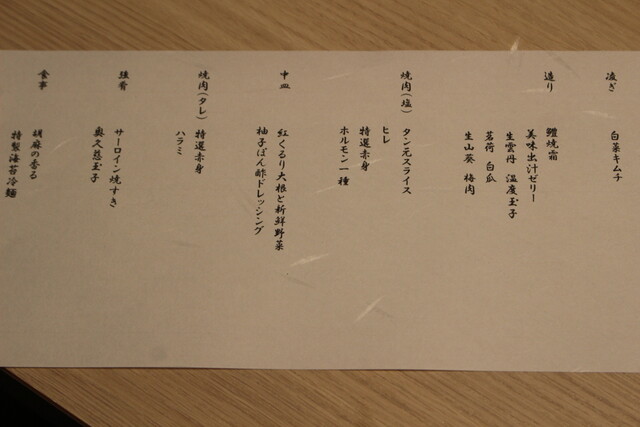 凌ぎ
白菜キムチ
造り
鱧焼霜
美味出汁ゼリー
生雲丹 温度玉子
茗荷 白瓜
生山葵 梅肉
焼肉(塩)
タン元スライス
ヒレ
特選赤身
ホルモン一種
中皿
紅くるり大根と新鮮野菜
柚子ぽん酢ドレッシング
焼肉(タレ)
特選赤身
ハラミ
強肴
サーロイン焼すき
奥久慈玉子
食事
胡麻の香る
特製海苔冷麺